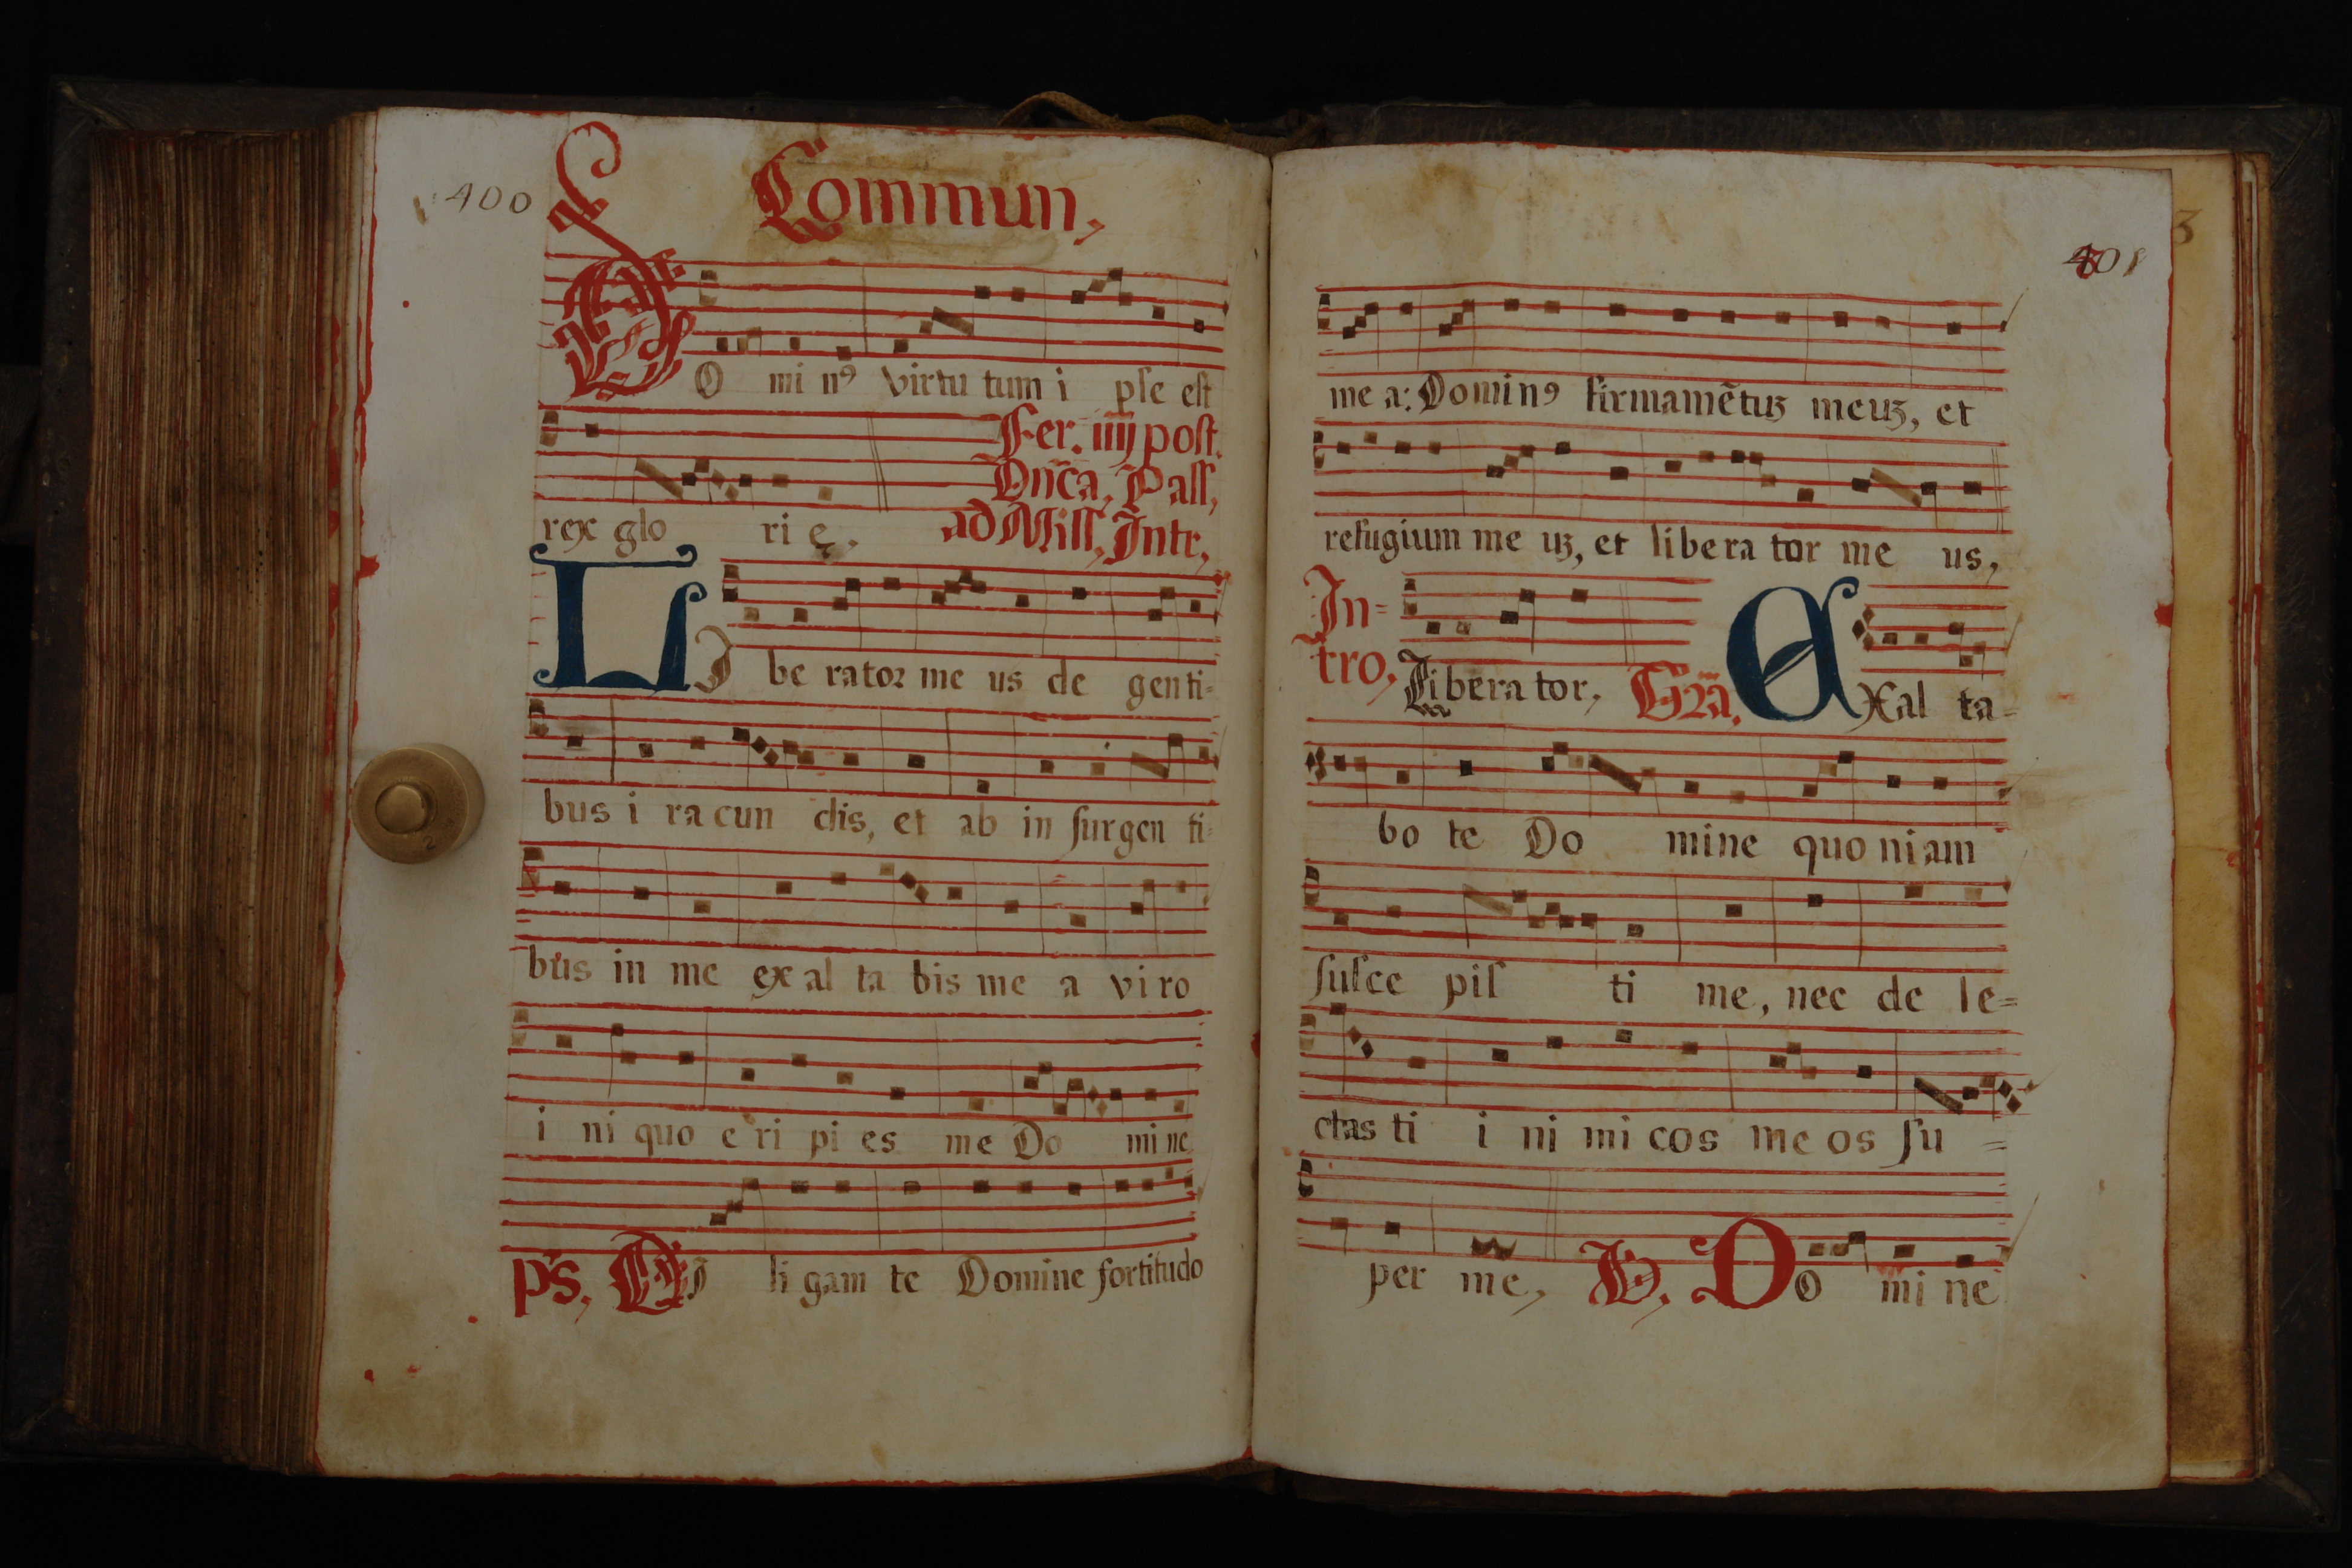 400
Commun,
DO mi nꝰ virtu tum i pſe eſt
rex glo ri ę.
Fer. iiij poſt.
Dn̄ca, Paſſ,
ad Miſſ, Intr,
LI be rator me us de genti-
bus i ra cun dis, et ab in ſur gen ti-
bus in me ex al ta bis me a vi ro
i ni quo e ri pi es me Do mi ne
ps, DI li gam te Domine fortitudo
401
me a: Dominꝰ firmamẽtuȝ meuȝ, et
refugium me uȝ, et libera tor me us,
In-
tro, Libera tor, Gra. EXal ta-
bo te Do mine quo niam
ſuſce piſ ti me, nec de le=
ctas ti i ni mi cos me os ſu =
per me, V. DO mi ne